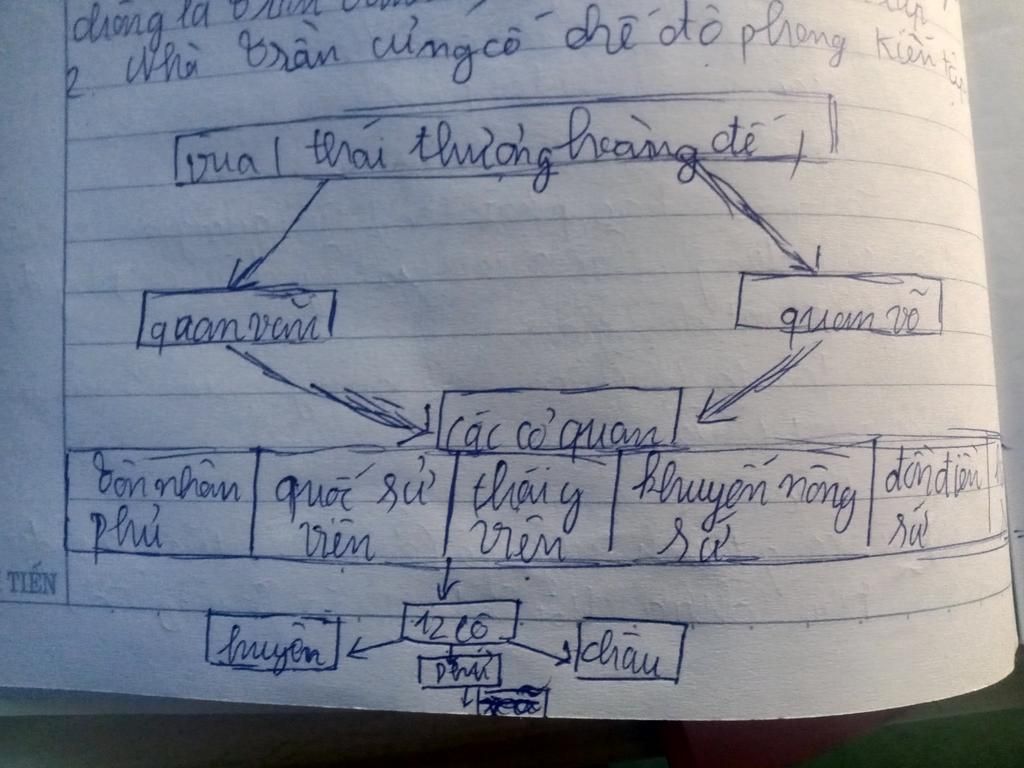 chồng là Trần
2. Nhà Trần củng cố chế độ phong kiến tập
vua ( thái thượng hoàng đế )
quan văn
quan võ
các cơ quan
tôn nhân phủ
quốc sử viện
thái y viện
khuyến nông sứ
đồn điền sứ
12 lộ
huyện
phủ
châu
TIẾN